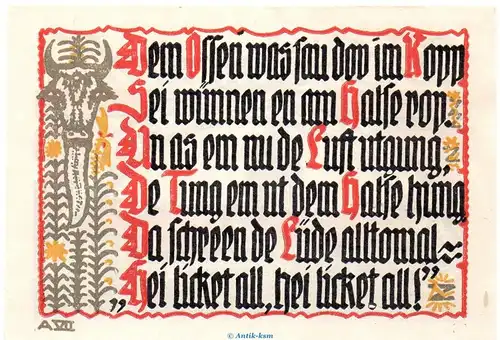 Dem Ossen was sau dov im Kopp
Sei wünnen en am Halse rop.
Un as em nu de Luft utgung,
De Tung em ut dem Halse hung,
Da schreen de Lüde alltomal
„Hei licket all, hei licket all!”
A.VII
© Antik-ksm